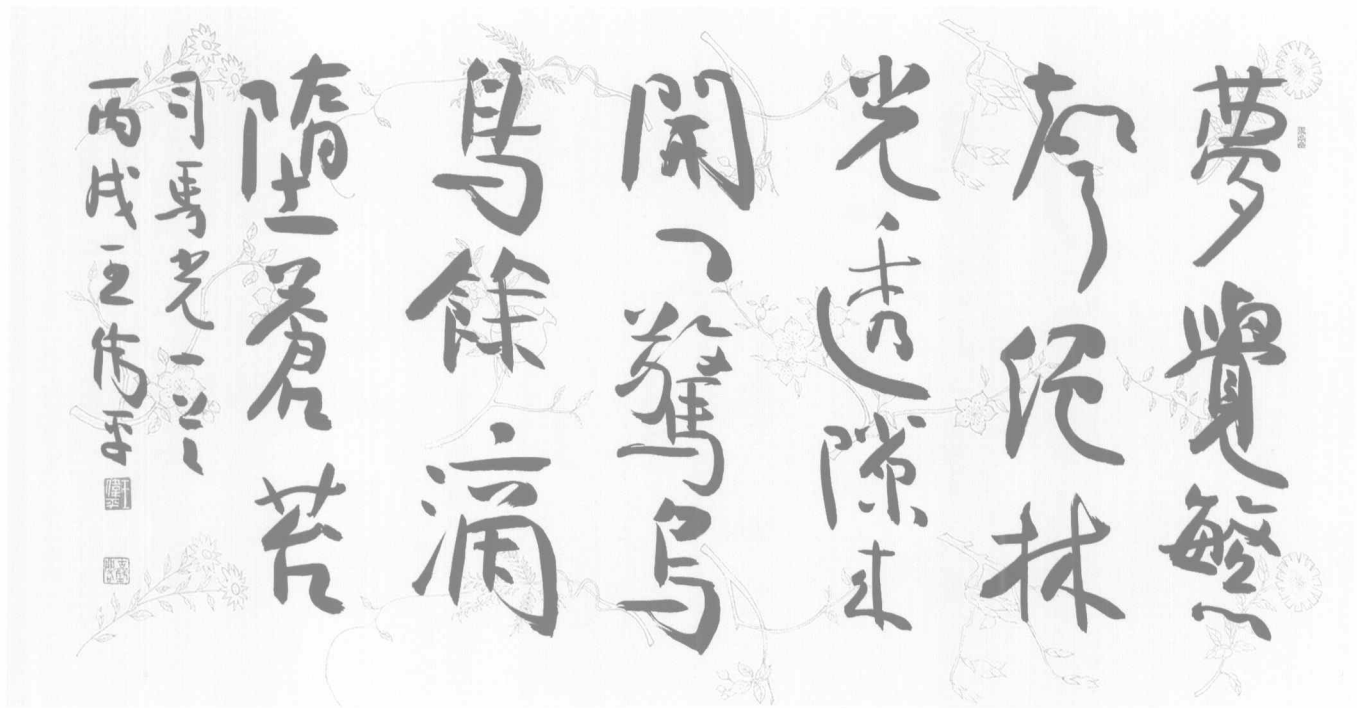 夢覺繁
聲絕林
光透隙來
開門驚烏
鳥餘滴
墮蒼苔
司馬光一首
丙戌王偉平